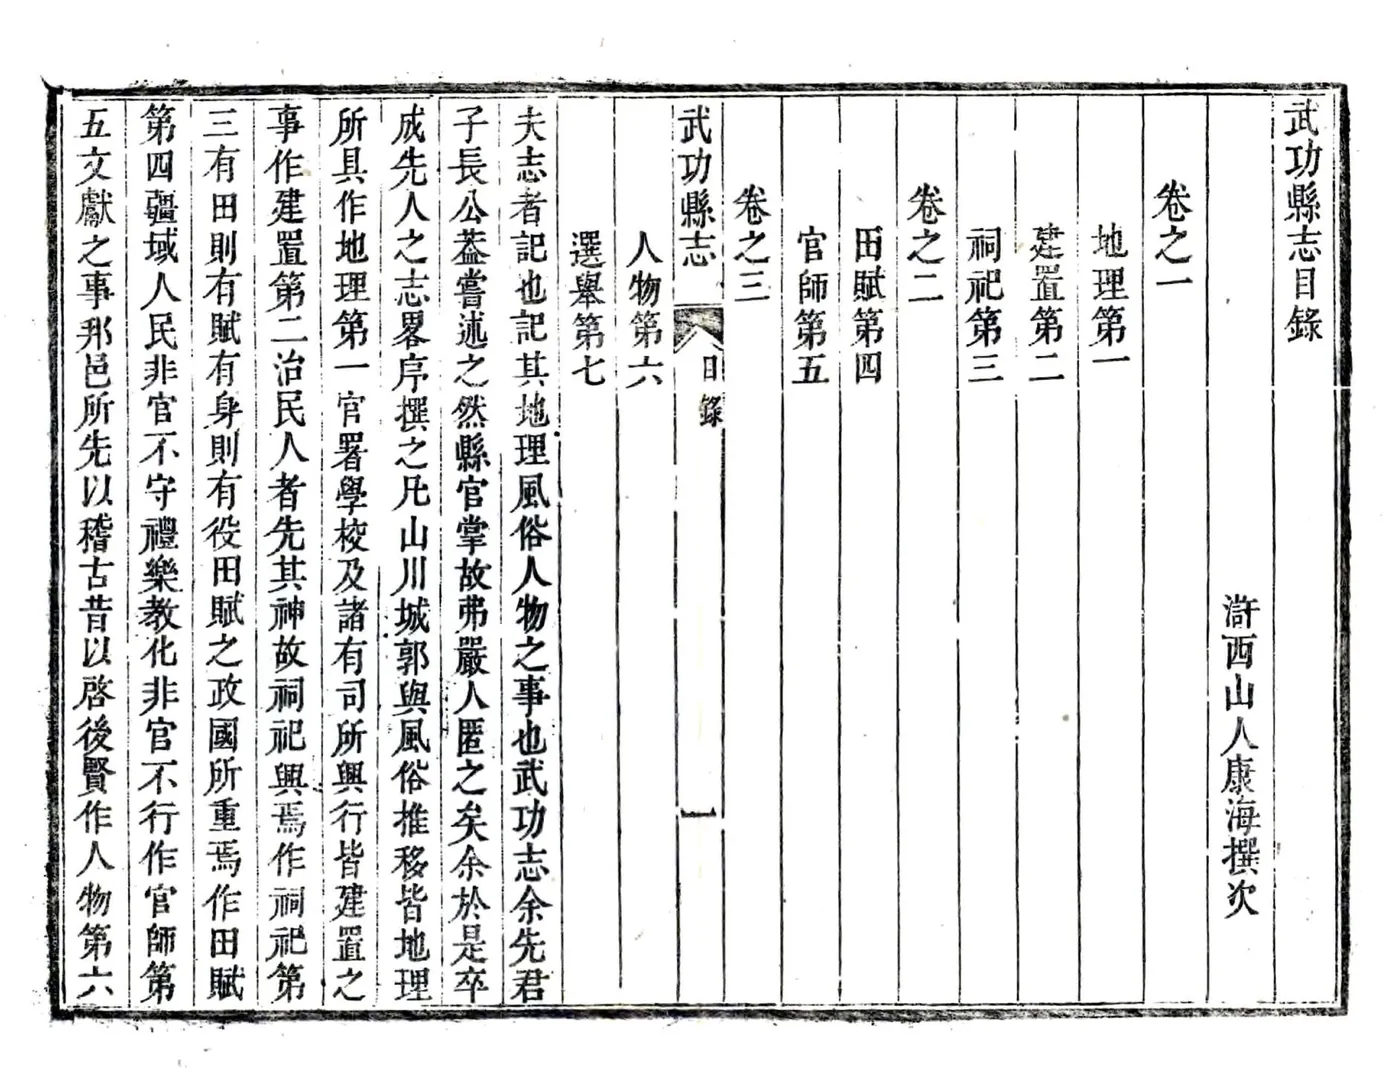 武功縣志目錄
滸西山人康海撰次
卷之一
地理第一
建置第二
祠祀第三
卷之二
田賦第四
官師第五
卷之三
武功縣志 目錄 一
人物第六
選舉第七
夫志者記也記其地理風俗人物之事也武功志余先君
子長公葢嘗述之然縣官掌故弗嚴人匿之矣余於是卒
成先人之志畧序撰之凡山川城郭與風俗推移皆地理
所具作地理第一官署學校及諸有司所興行皆建置之
事作建置第二治民人者先其神故祠祀興焉作祠祀第
三有田則有賦有身則有役田賦之政國所重焉作田賦
第四疆域人民非官不守禮樂教化非官不行作官師第
五文獻之事邦邑所先以稽古昔以啓後賢作人物第六